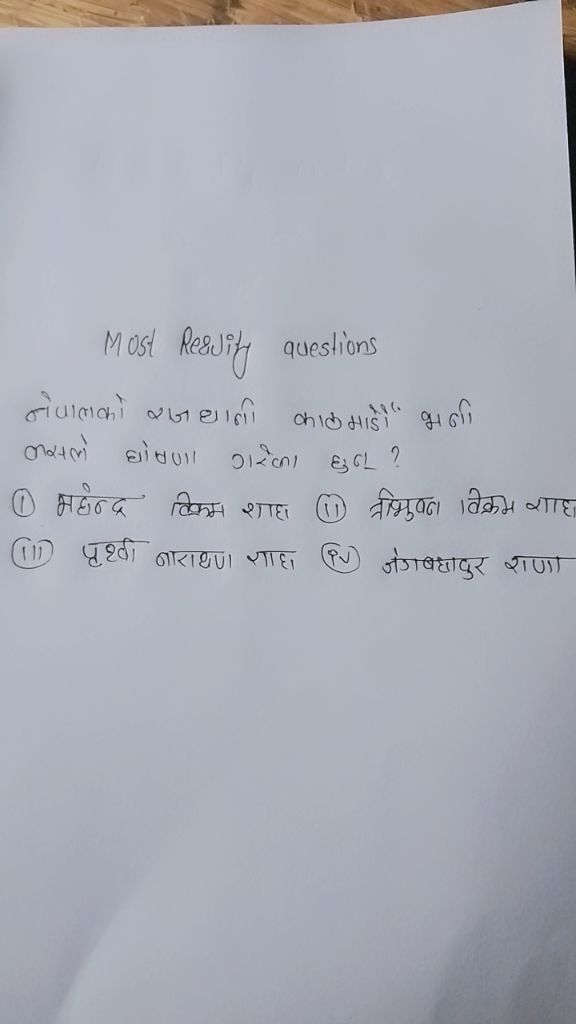 Most questions
नेपालको राजधानी काठमाडौं भनी
कसले घोषणा गरेका हुन ?
(i) महेन्द्र विक्रम शाह (ii) त्रीभुवन विक्रम शाह
(iii) पृथ्वी नारायण शाह (iv) जंगबहादुर राणा